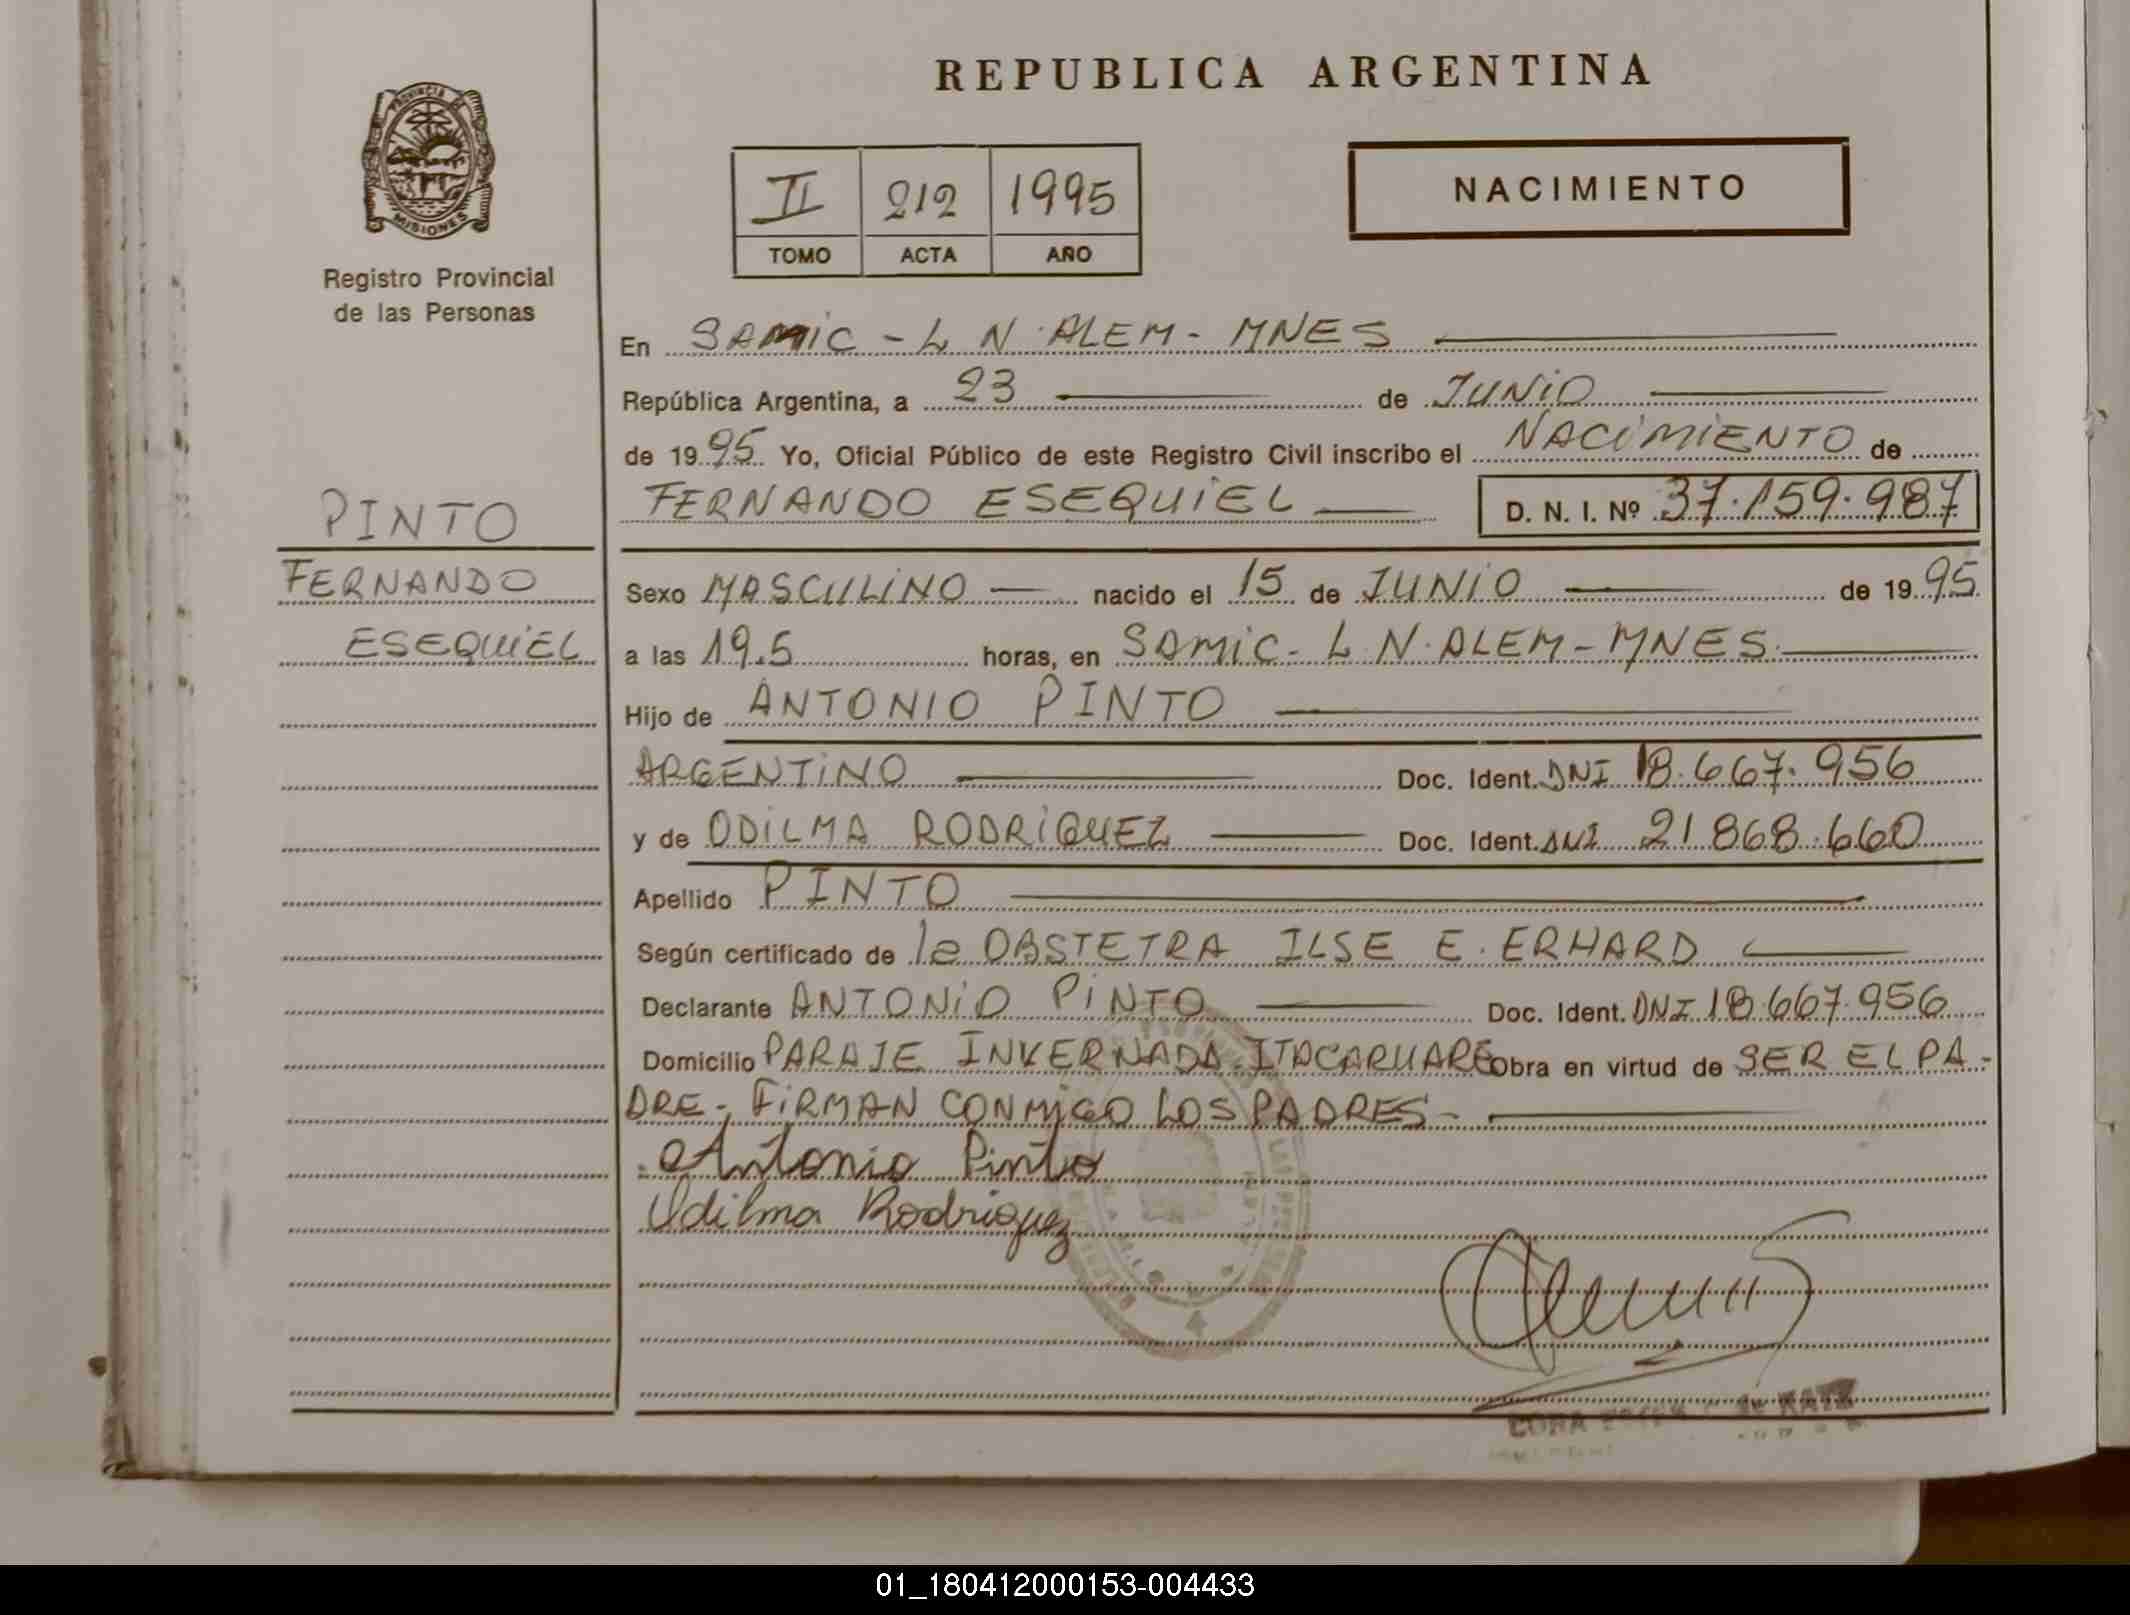 REPUBLICA ARGENTINA
PROVINCIA DE
MISIONES
Registro Provincial
de las Personas
II 212 1995
TOMO ACTA AÑO
NACIMIENTO
En SAMIC - L N. ALEM - MNES
República Argentina, a 23 de JUNIO
de 1995 Yo, Oficial Público de este Registro Civil inscribo el NACIMIENTO de
FERNANDO ESEQUIEL D. N. I. Nº 37.159.987
PINTO
FERNANDO
ESEQUIEL
Sexo MASCULINO nacido el 15 de JUNIO de 1995
a las 19.5 horas, en SAMIC - L N. ALEM - MNES
Hijo de ANTONIO PINTO
ARGENTINO Doc. Ident. DNI 18.667.956
y de ODILMA RODRIGUEZ Doc. Ident. DNI 21 868.660
Apellido PINTO
Según certificado de la OBSTETRA ILSE E. ERHARD
Declarante ANTONIO PINTO Doc. Ident. DNI 18.667.956
Domicilio PARAJE INVERNADA ITACARUARE Obra en virtud de SER EL PA-
DRE-, FIRMAN CONMIGO LOS PADRES-
Antonio Pinto
Odilma Rodriguez
01_180412000153-004433